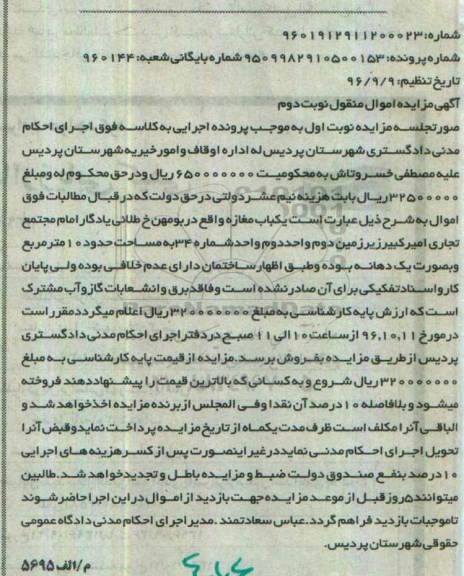 شماره: ۹۶۰۱۹۱۲۹۱۱۲۰۰۰۲۳
شماره پرونده: ۹۵۰۹۹۸۲۹۱۰۵۰۰۱۵۳ شماره بایگانی شعبه: ۹۶۰۱۴۴
تاریخ تنظیم: ۹۶/۹/۹
آگهی مزایده اموال منقول نوبت دوم
صورتجلسه مزایده نوبت اول به موجب پرونده اجرایی به کلاسه فوق اجرای احکام
مدنی دادگستری شهرستان پردیس له اداره اوقاف و امور خیریه شهرستان پردیس
علیه مصطفی خسروتاش به محکومیت ۶۵۰۰۰۰۰۰۰ ریال ودرحق محکوم له ومبلغ
۳۲۵۰۰۰۰۰ ریال بابت هزینه نیم عشر دولتی درحق دولت که در قبال مطالبات فوق
اموال به شرح ذیل عبارت است یکباب مغازه واقع در بومهن خ طلائی یادگار امام مجتمع
تجاری امیرکبیر زیرزمین دوم واحددوم واحدشماره ۳۴به مساحت حدود ۱۰ متر مربع
وبصورت یک دهانه بوده وطبق اظهار ساختمان دارای عدم خلافی بوده ولی پایان
کار واسناد تفکیکی برای آن صادر نشده است وفاقد برق وانشعابات گاز وآب مشترک
است که ارزش پایه کارشناسی به مبلغ ۳۲۰۰۰۰۰۰۰ ریال اعلام میگردد مقرر است
درمورخ ۹۶,۱۰,۱۱ از ساعت ۱۰ الی ۱۱ صبح در دفتر اجرای احکام مدنی دادگستری
پردیس ازطریق مزایده بفروش برسد. مزایده از قیمت پایه کارشناسی به مبلغ
۳۲۰۰۰۰۰۰۰ ریال شروع و به کسانی که بالاترین قیمت را پیشنهاد دهند فروخته
میشود و بلافاصله ۱۰ درصد آن نقدا وفی المجلس از برنده مزایده اخذ خواهد شد و
الباقی آنرا مکلف است ظرف مدت یکماه از تاریخ مزایده پرداخت نماید وقبض آنرا
تحویل اجرای احکام مدنی نماید درغیر اینصورت پس از کسر هزینه های اجرایی
۱۰ درصد بنفع صندوق دولت ضبط و مزایده باطل و تجدید خواهد شد. طالبین
میتوانند ۵ روز قبل از موعد مزایده جهت بازدید از اموال در این اجرا حاضر شوند
تا موجبات بازدید فراهم گردد. عباس سعادتمند . مدیر اجرای احکام مدنی دادگاه عمومی
حقوقی شهرستان پردیس.
م/الف ۵۶۹۵